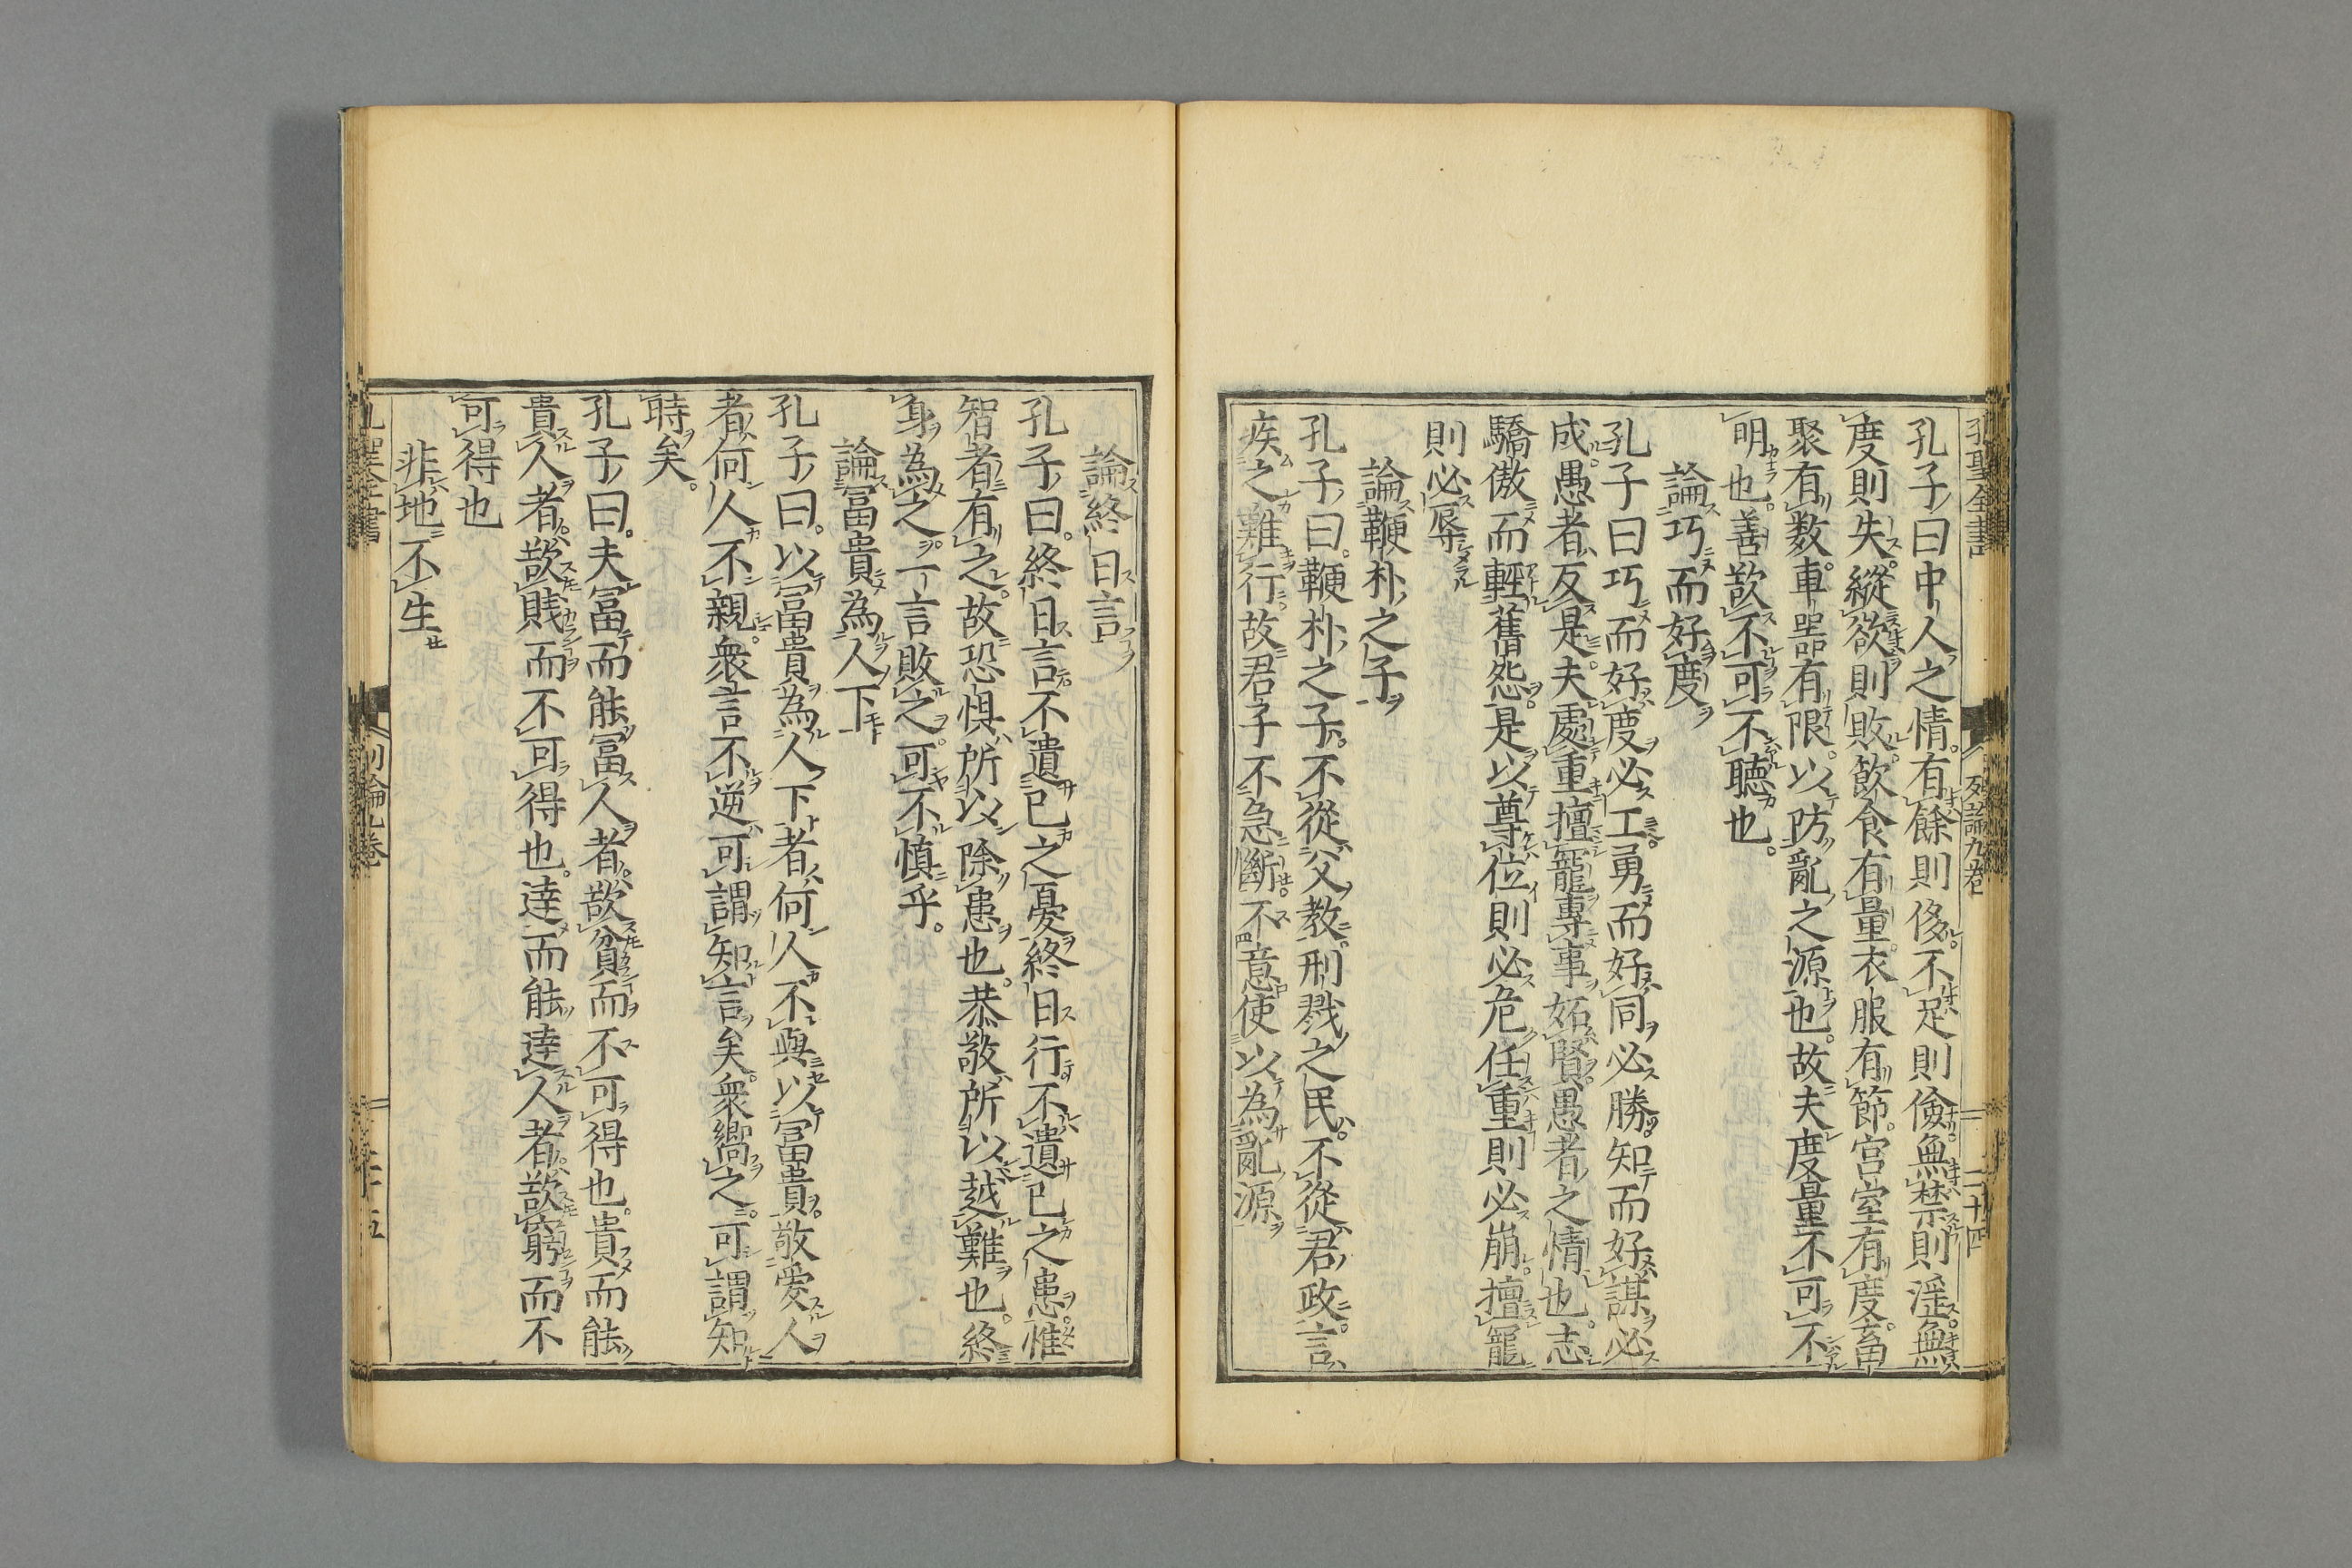 孔聖全書
列論九卷
二十四
孔子曰中人之情有餘則侈不足則儉無禁則淫無
度則失縱欲則敗飲食有量衣服有節宫室有度畜
聚有数車噐有限以防亂之源也故夫度量不可不
明也善欲不可不聽也
論巧而好度
孔子曰巧而好度必工勇而好同必勝知而好謀必
成愚者反是夫處重擅寵專事妬賢愚者之情也志
驕傲而輕舊怨是以尊位則必危任重則必崩擅寵
則必辱
論鞭朴之子
孔子曰鞭朴之子不從父教刑戮之民不從君政言
疾之難行故君子不急斷不意使以為亂源
論終日言
孔子曰終日言不遺已之憂終日行不遺已之患惟
智者有之故恐惧所以除患也恭敬所以越難也終
身為之一言敗之可不慎乎
論冨貴為人下
孔子曰以冨貴為人下者何人不與以冨貴敬愛人
者何人不親衆言不逆可謂知言矣衆嚮之可謂知
時矣
孔子曰夫冨而能冨人者欲貧而不可得也貴而能
貴人者欲賎而不可得也達而能達人者欲窮而不
可得也
非地不生
孔聖全書
列論九卷
二十五